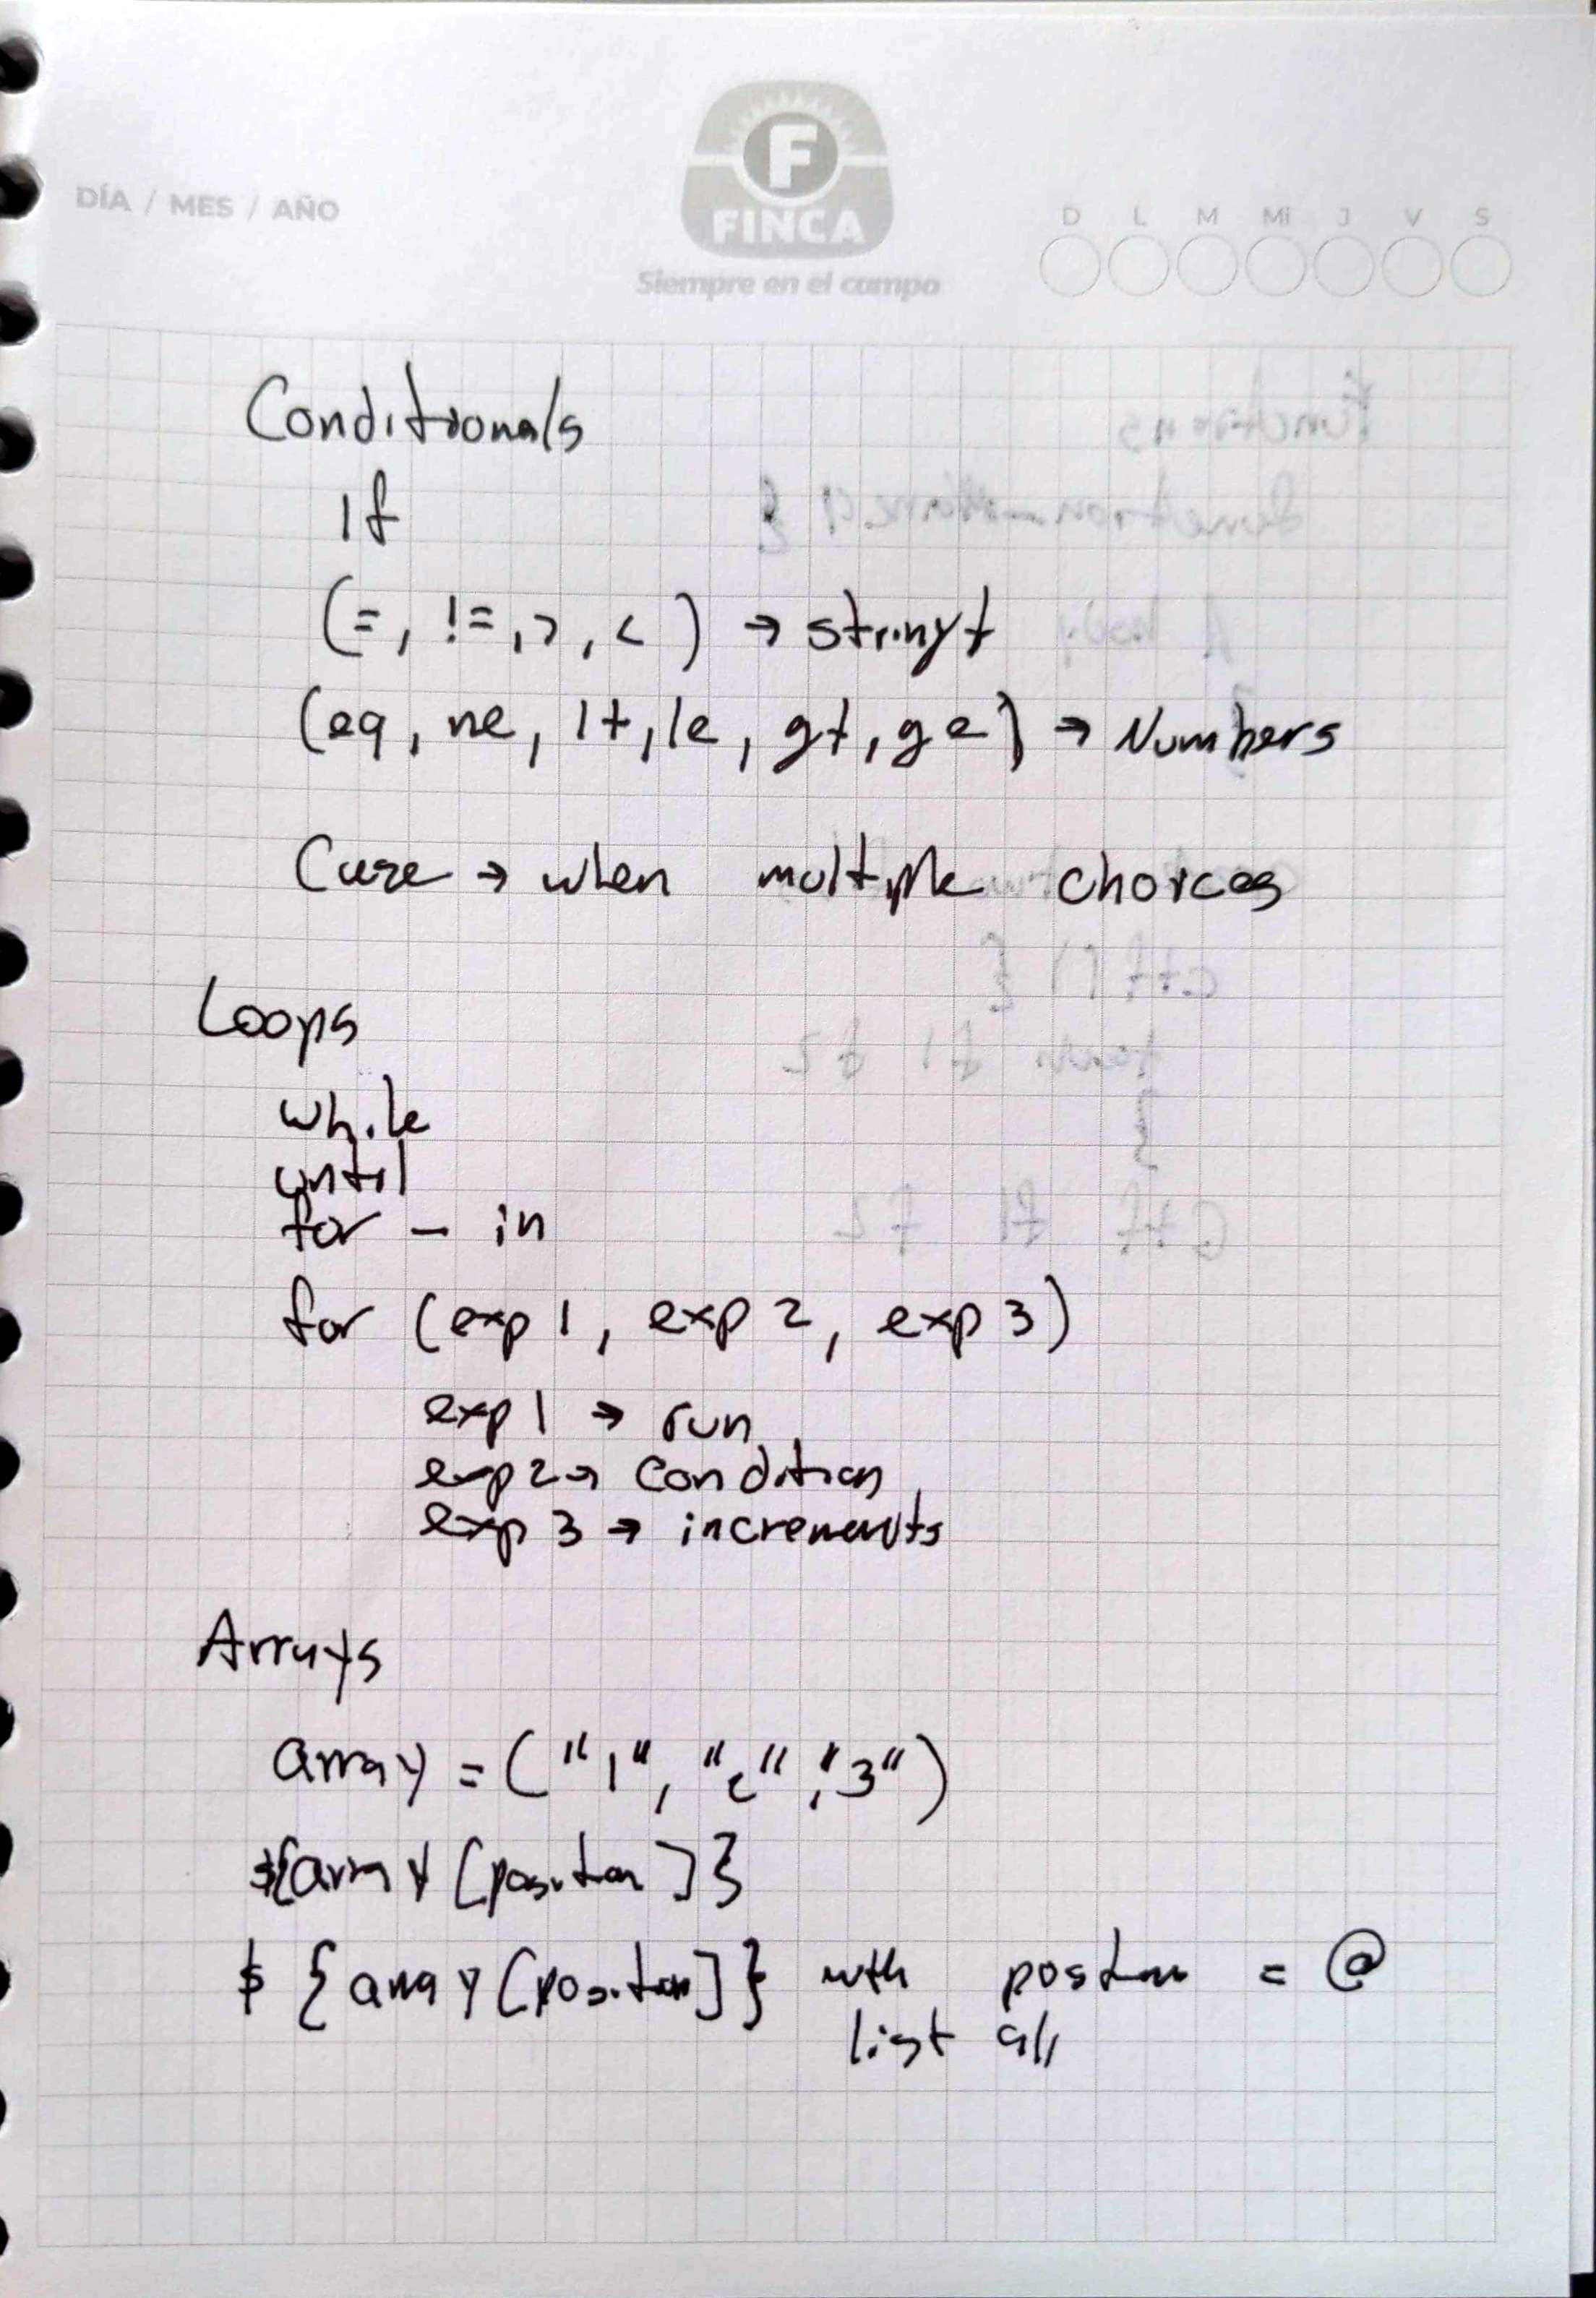 DÍA / MES / AÑO
F
FINCA
Siempre en el campo
D L M Mi J V S
Conditionals
If
(=, !=, >, <) →
(eq, ne, lt, le, gt, ge) → Numbers
Case → when multiple choices
Loops
while
until
for - in
for (exp 1, exp 2, exp 3)
exp 1 → run
exp 2 → condition
exp 3 → increments
Arrays
array = ("1", "2", "3")
${array [position]}
$ {array [position]} with position = @
list all